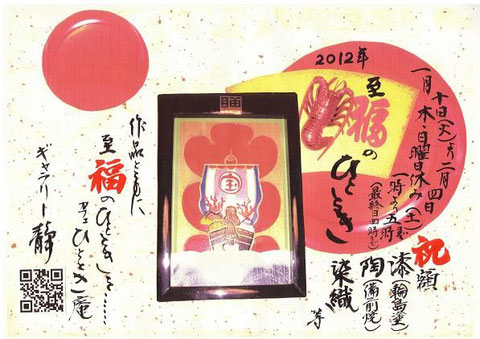 2012年
至福のひととき
一月十日(火)より二月四日
(土)まで
木・日曜休み
一時より五時
(最終日四時まで)
祝額
漆(輪島塗)
陶(備前焼)
染織 等
宝
作品とともに
至福のひとときを……
ひととき庵
ギャラリー静